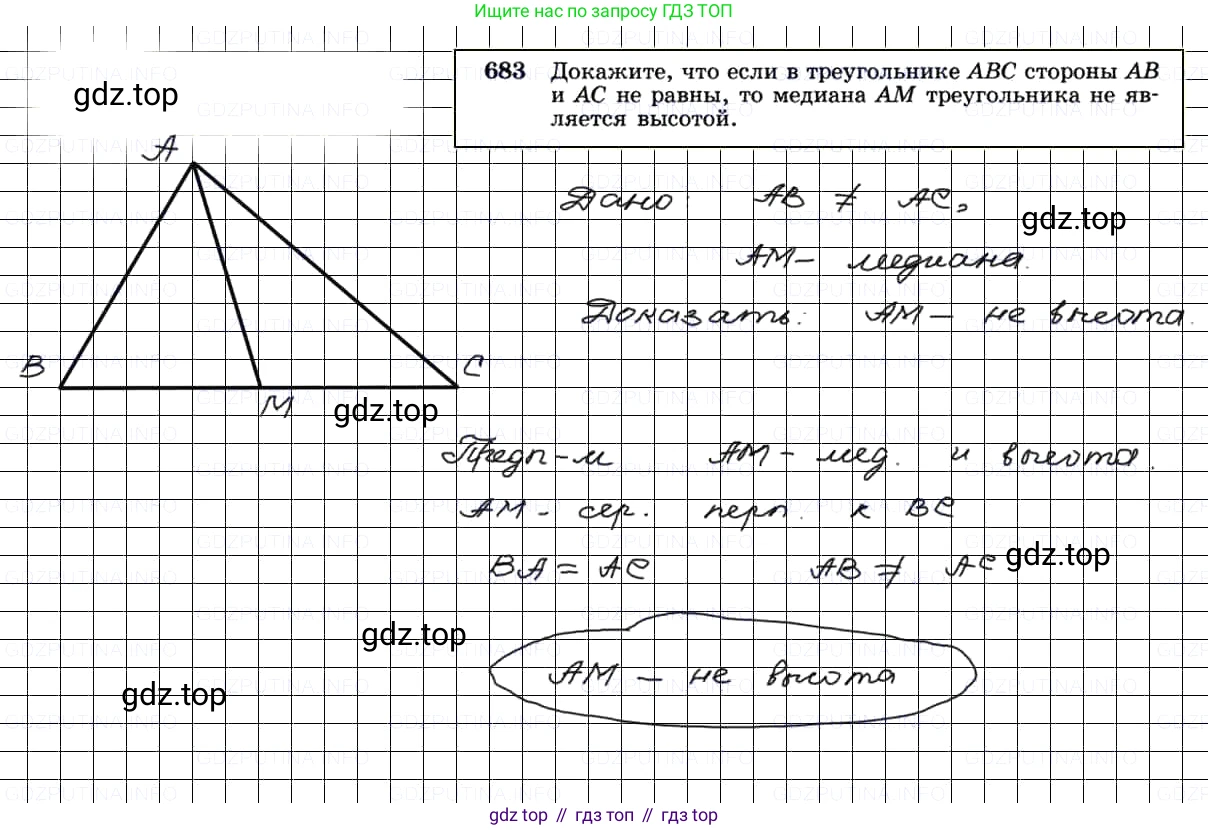 Ищите нас по запросу ГДЗ ТОП
683 Докажите, что если в треугольнике ABC стороны AB
и AC не равны, то медиана AM треугольника не яв-
ляется высотой.
gdz.top
A
Дано: AB ≠ AC,
gdz.top
AM – медиана.
Доказать: AM – не высота.
B
C
M
gdz.top
Предп-м AM – мед. и высота.
AM – сер. перп. к BC
BA = AC AB ≠ AC
gdz.top
gdz.top
AM – не высота
gdz.top
gdz top // гдз топ // гдз top